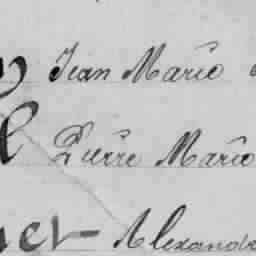 Jean Marie
Pierre Marie
Alexand